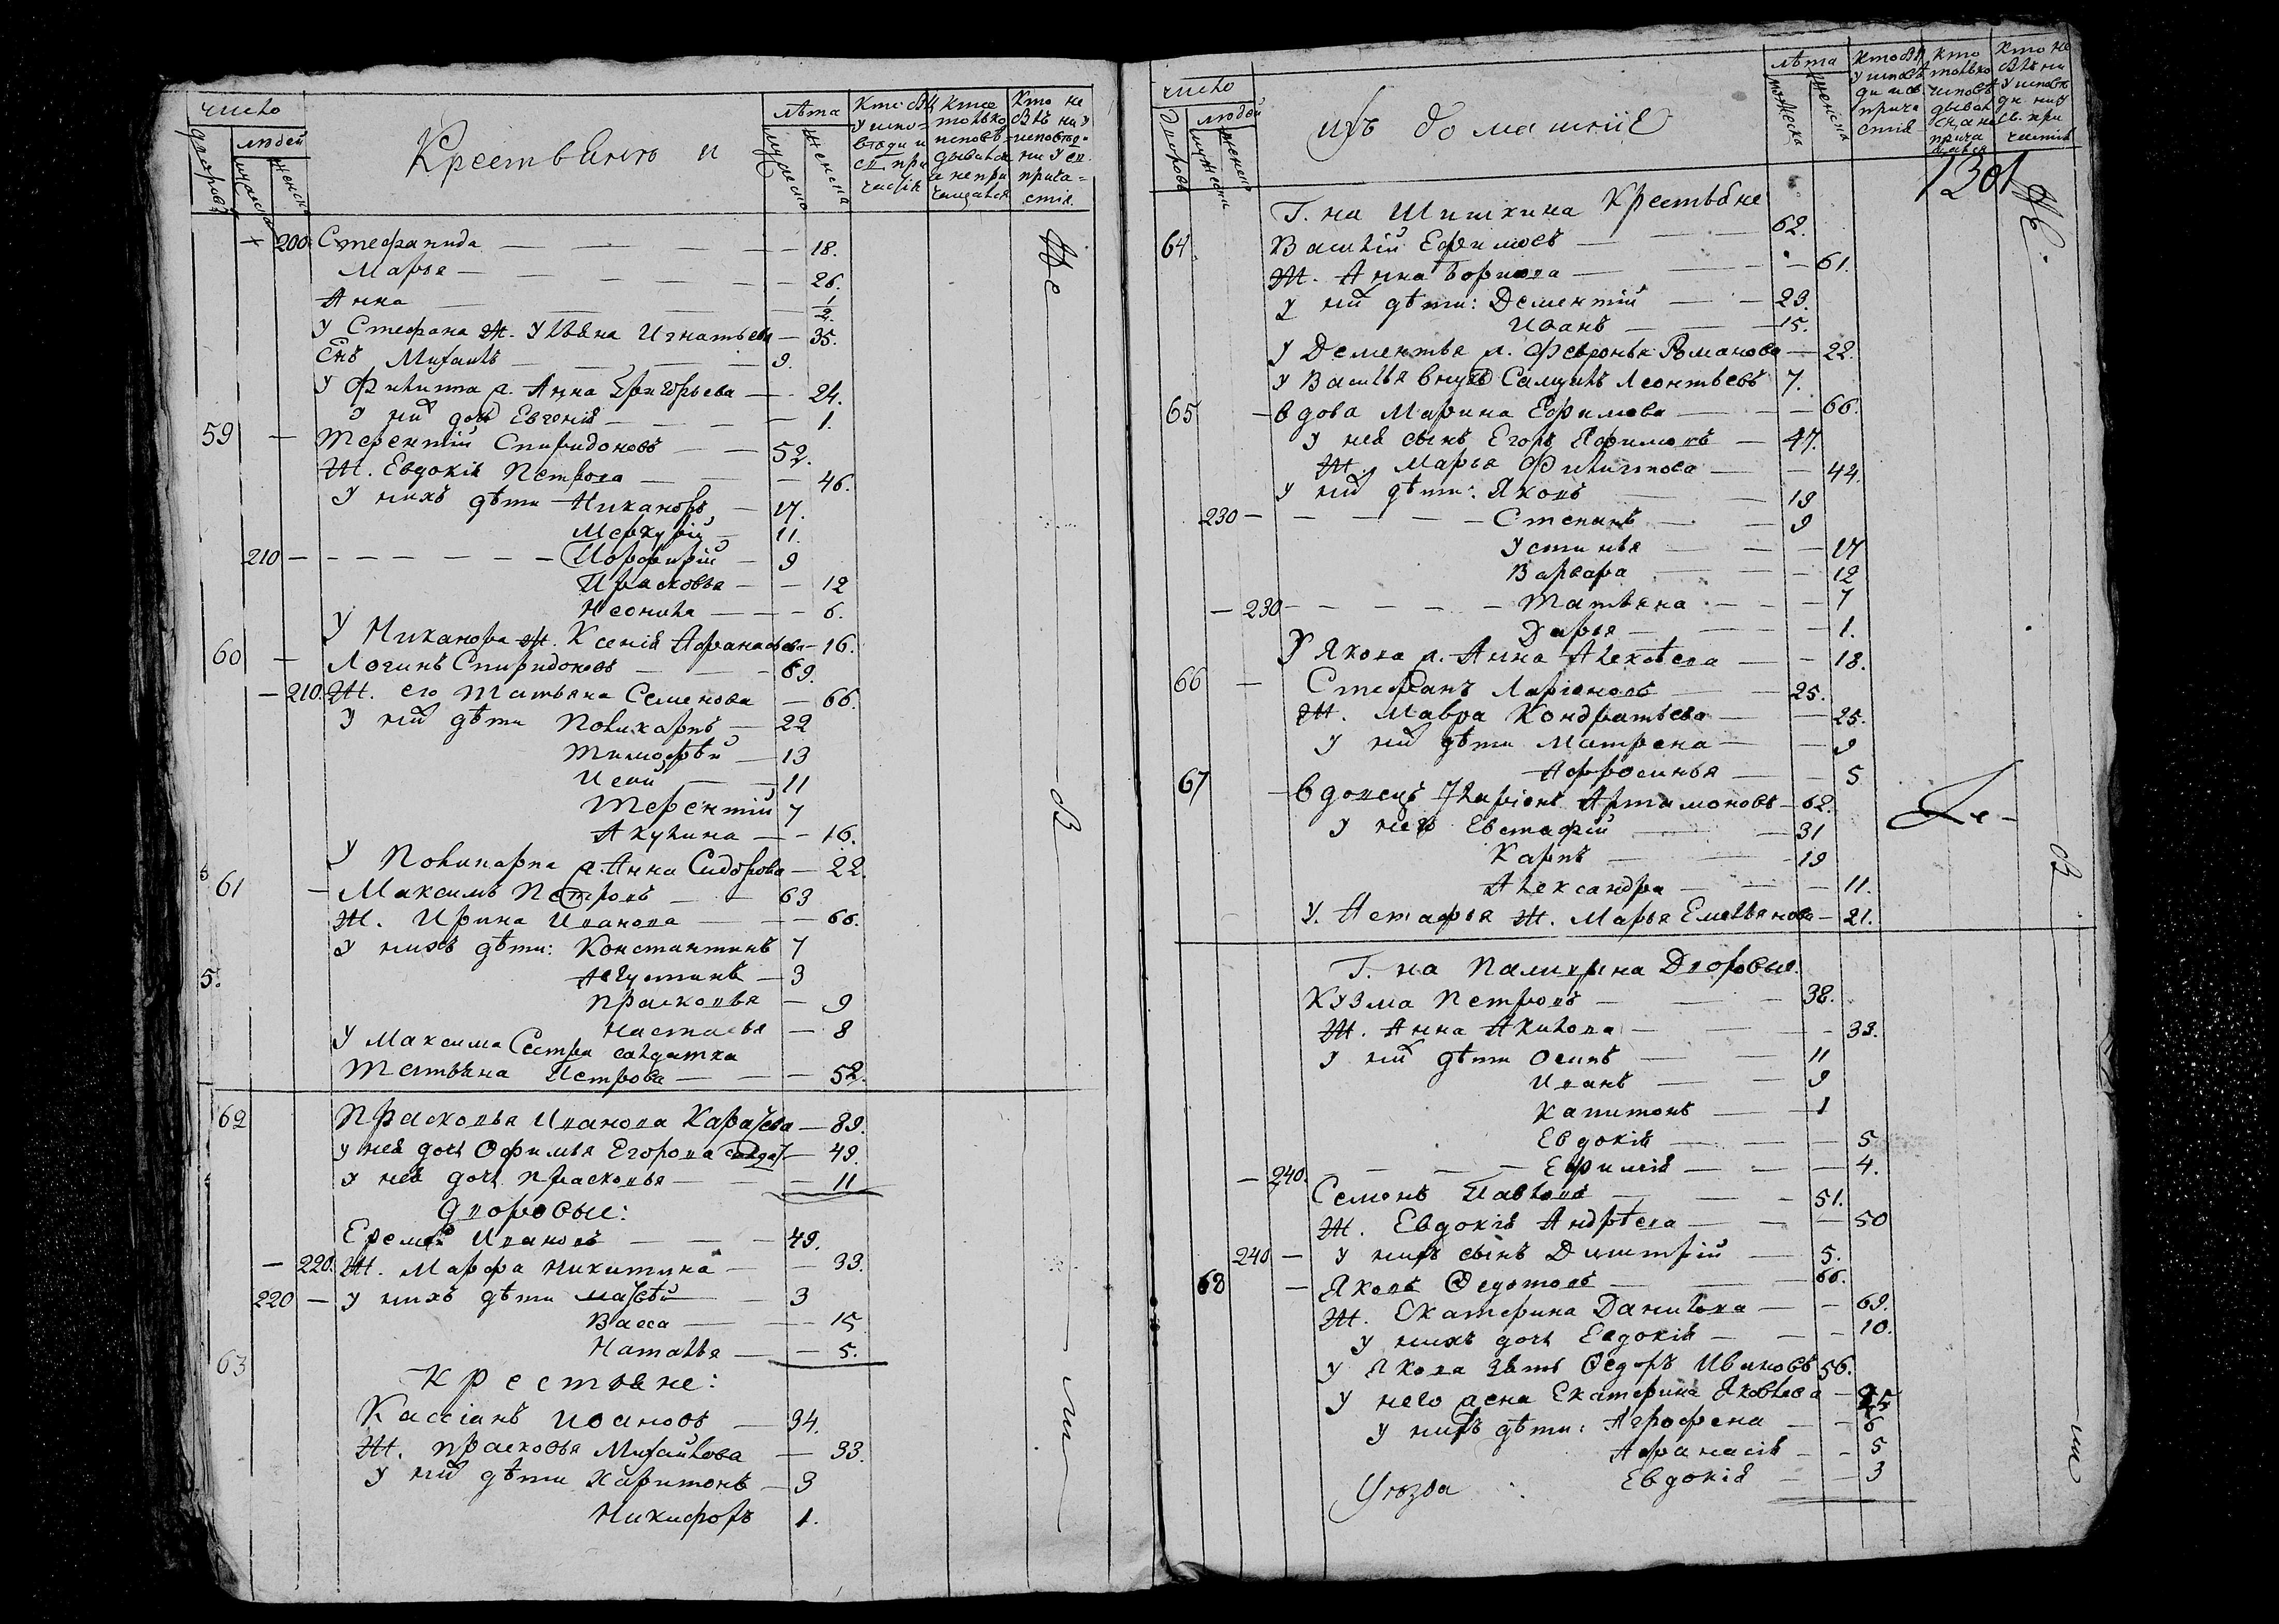 число
лѣта
людей
дворовъ
мужеска
женска
Крестьянъ и
мужеска
женска
Кто былъ у исповѣди и св. причастія
Кто только исповѣдывался а не причащался
Кто не былъ ни у исповѣди ни у св. причастія
200. Стефанида — 18.
Марья — 26.
Анна — 1/2.
У Стефана ж. Ульяна Игнатьева — 35.
Снъ Михаилъ — 9.
У Филиппа ж. Анна Григорьева — 24.
У них дочь Евгенія — 1.
59 — Терентій Спиридоновъ — 52.
Ж. Евдокія Петрова — 46.
У нихъ дѣти Никаноръ — 17.
Меркурій — 11.
210 — Порфирій — 9
Прасковья — 12
Неонила — 6.
У Никанора ж. Ксенія Афанасьева — 16.
60 — Логинъ Спиридоновъ — 69.
— 210. Ж. его Татьяна Семенова — 66.
У них дѣти Поликарпъ — 22
Тимофѣй — 13
Исай — 11
Терентій 7
Акулина — 16.
У Поликарпа ж. Анна Сидорова — 22.
61 — Максимъ Петровъ — 63
Ж. Ирина Иванова — 66.
У нихъ дѣти: Константинъ 7
5. Августинъ — 3
Прасковья — 9
Настасья — 8
У Максима Сестра салдатка
Татьяна Петрова — 52.
62 Прасковья Иванова Карасева — 89.
У нея дочь Офимья Егорова салдат. — 49.
У нея дочь Прасковья — 11
Дворовые:
Еремѣй Ивановъ — 49.
— 220. Ж. Марфа Никитина — 33.
220 — У нихъ дѣти Матвѣй — 3
Васса — 15
Наталья — 5.
63
Крестьяне:
Кассіанъ Ивановъ — 34.
Ж. Прасковья Михайлова — 33.
У них дѣти Харитонъ — 3
Никифоръ 1.
Не — в — ш
число
лѣта
людей
дворовъ
мужеска
женска
ихъ домашніе
мужеска
женска
Кто былъ у исповѣди и св. причастія
Кто только исповѣдывался а не причащался
Кто не былъ ни у исповѣди ни у св. причастія
1301
Г. на Шишкина Крестьяне
64 Василій Ефимовъ — 62.
Ж. Анна Борисова — 61.
У них дѣти: Дементій — 23.
Иванъ — 15.
У Дементья ж. Февронья Романова — 22.
У Василья внукъ Самуилъ Леонтьевъ 7.
65 — вдова Марина Ефимова — 66.
У нея сынъ Егоръ Ефимовъ — 47.
Ж. Марья Филиппова — 44.
У них дѣти: Яковъ — 19
230 — Степанъ — 9
Устинья — 17
Варвара — 12
— 230 — Татьяна — 7
Дарья — 1.
У Якова ж. Анна Алексѣева — 18.
66 — Стефанъ Ларіоновъ — 25.
Ж. Мавра Кондратьева — 25.
У них дѣти Матрена — 9
Аффросинья — 5
67 — вдовецъ Иларіонъ Артамоновъ — 62.
У него Евстафій — 31
Карпъ — 19
Александра — 11.
У. Астафья ж. Марья Емельянова — 21.
Г. на Палицына Дворовые.
Кузма Петровъ — 38.
Ж. Анна Акилова — 33.
У них дѣти Осипъ — 11
Иванъ — 9
Капитонъ — 1
Евдокія — 5
— 240. Ефимія — 4.
Семенъ Павловъ — 51.
Ж. Евдокія Андрѣева — 50
240 — У нихъ сынъ Димитрій — 5.
68 — Яковъ Ѳедотовъ — 66.
Ж. Екатерина Данилова — 69.
У нихъ дочь Евдокія — 10.
У Якова зять Ѳедоръ Ивановъ 56.
У него жена Екатерина Яковлева — 25
У нихъ дѣти: Агрофена — 6
Афанасія — 5
Евдокія — 3
Не — в — ш